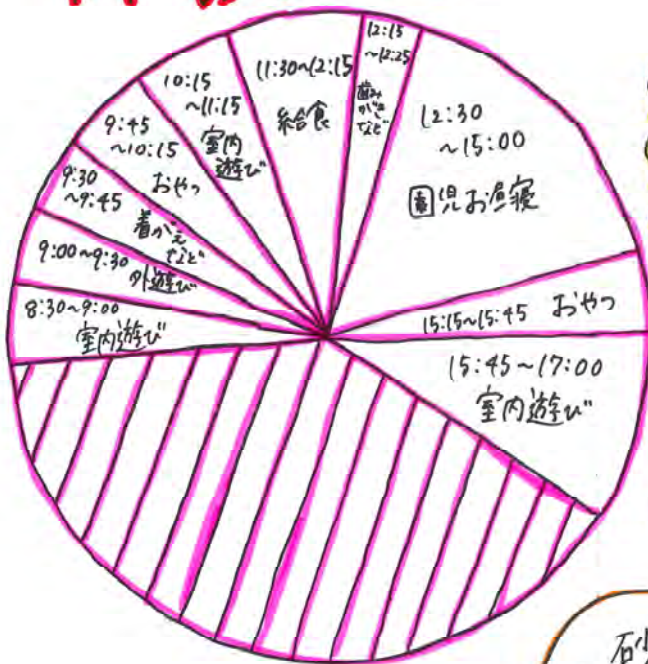 8:30~9:00
室内遊び
9:00~9:30
外遊び
9:30
~9:45
着がえ
など
9:45
~10:15
おやつ
10:15
~11:15
室内
遊び
11:30~12:15
給食
12:15
~12:25
歯み
がき
など
12:30
~15:00
園児お昼寝
15:15~15:45 おやつ
15:45~17:00
室内遊び